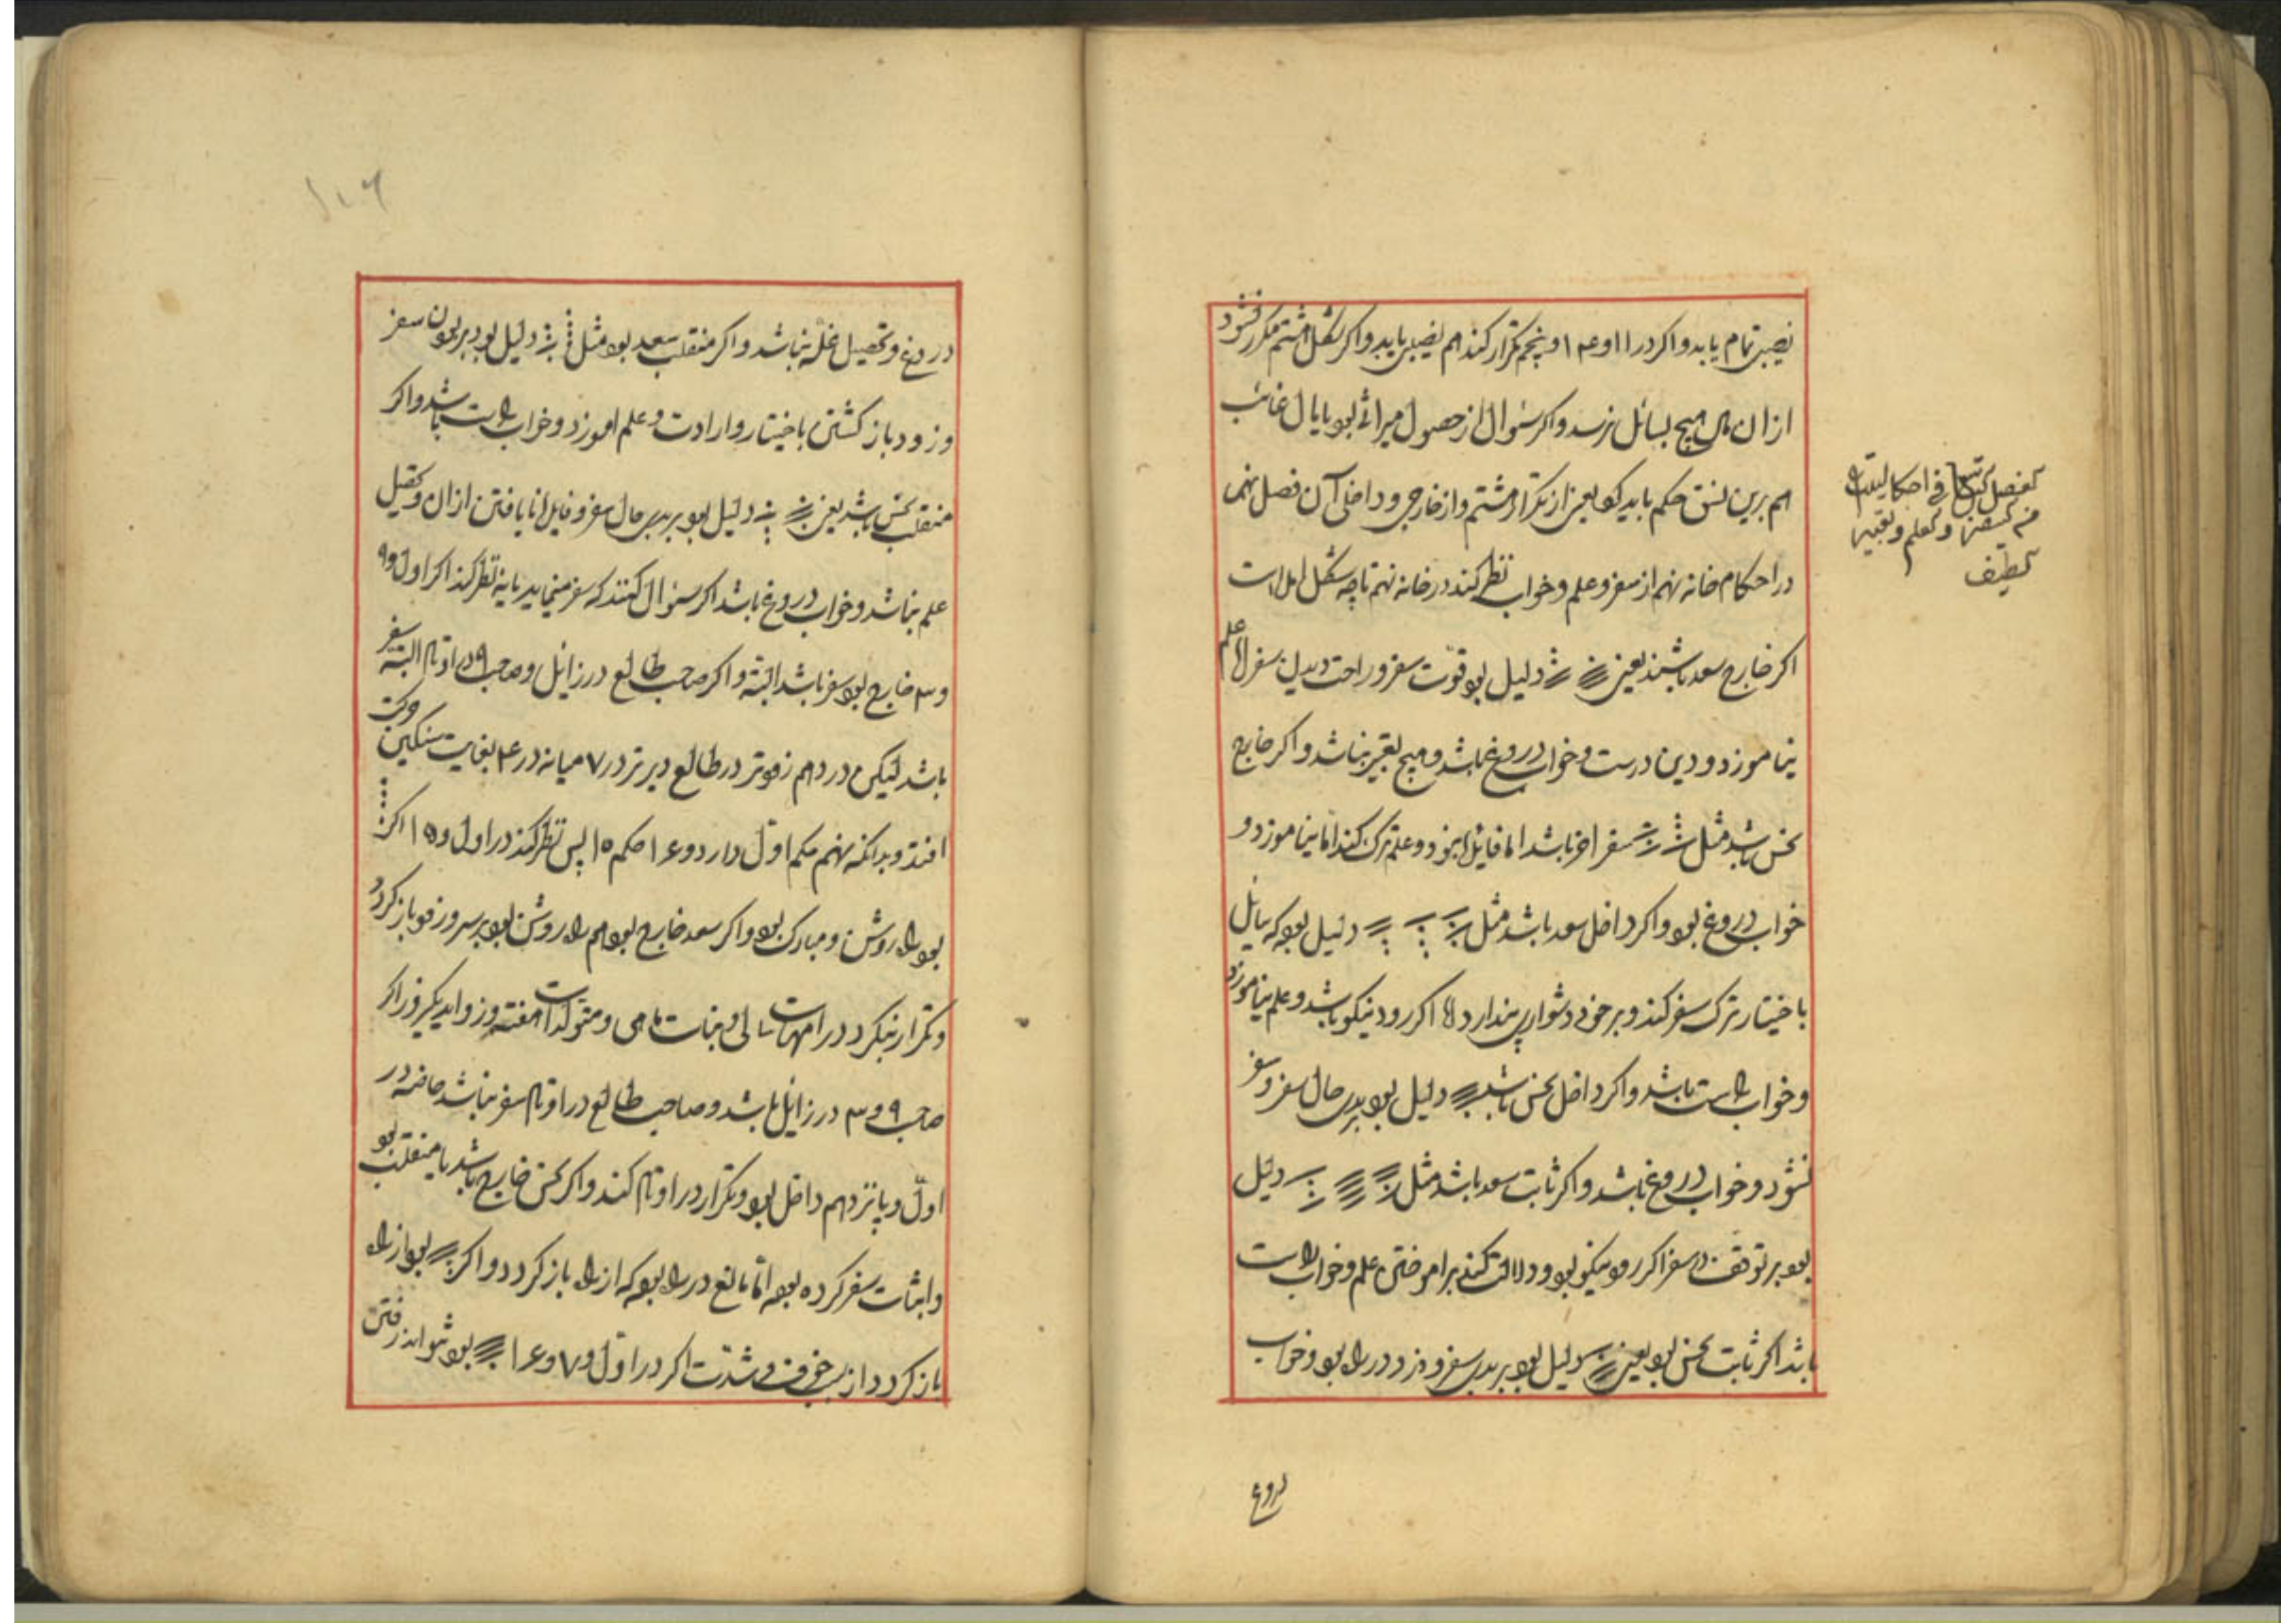 نصیبی تمام یابد و اکر در ۱۱ و ۱۴ و پنجم تکرار کند هم نصیبی یابد و اکر شکل هشتم مکرر نشود
از ان مال هیچ بسائل نرسد و اکر سئوال از حصول میراثی بود یا مال غائب
هم برین نسق حکم باید کرد یعنی از تکرار هشتم و از خارجی و داخلی آن فصل نهم
در احکام خانه نهم از سفر و علم و خواب نظر کند در خانه نهم تا چه شکل امده است
اکر خارج سعد باشد یعنی دلیل بود قوت سفر و راحت دیدن سفر اما علم
نیاموزد و دین درست و خواب دروغ باشد و هیچ تعبیر نباشد و اکر خارج
نحس باشد مثل سفر اخر باشد اما فایده نبود و علم ترک کند اما نیاموزد و
خواب دروغ بود و اکر داخل سعد باشد مثل دلیل بود که سائل
باختیار ترک سفر کند و بر خود دشوار پندارد اما اکر رود نیکو باشد و علم بیاموزد
و خواب راست باشد و اکر داخل نحس باشد دلیل بود بدی حال سفر و سفر
نشود و خواب دروغ باشد و اکر ثابت سعد باشد مثل دلیل
بود بر توقف در سفر اکر رود نیکو بود و دلالت کند بر اموختن علم و خواب راست
باشد اکر ثابت نحس بود یعنی دلیل بود بر بدی سفر و دزد در راه بود و خواب
دروغ
لفصل التاسع فی احکام البیت التاسع
من السفر و العلم و تعبیر
لطیف
۱۰۶
دروغ و تحصیل علم نباشد و اکر منقلب سعد بود مثل دلیل بود بر بودن سفر
و زود باز کشتن باختیار و ارادت و علم اموزد و خواب راست باشد و اکر
منقلب نحس باشد یعنی دلیل بود بر بدی حال سفر و فایده نایافتن از ان و تحصیل
علم نباشد و خواب دروغ باشد اکر سئوال کنند که سفر مینماید یا نه نظر کند اکر اول و ۹
و ۳ خارج بود سفر باشد البته و اکر صاحب طالع در زایل و صاحب ۹ در اوتاد البته سفر
باشد لیکن در دهم زودتر در طالع دیرتر در ۷ میانه در ۴ بغایت سنکین حرکت
افتد و بدانکه نهم حکم اول دارد و ۱۴ حکم ۱۵ پس نظر کند در اول و ۱۵ اکر
بود راه روشن و مبارک بود و اکر سعد خارج بود هم راه روشن بود بر سر روز فرو باز کردد
و تکرار بنکرد در امهات سالی و بنات ماهی و متولدات هفته و زواید یکروز اکر
صاحب ۹ و ۳ در زایل باشد و صاحب طالع در اوتاد سفر نباشد خاصه در
اول و پانزدهم داخل بود و تکرار در اوتاد کند و اکر نحس خارج باشد یا منقلب بود
و اثبات سفر کرده بود اما مانع در راه بود که از راه باز کردد و اکر بود از راه
باز کردد از سبب خوف و شدت اکر در اول و ۷ و ۱۴ بود نتواند رفتن